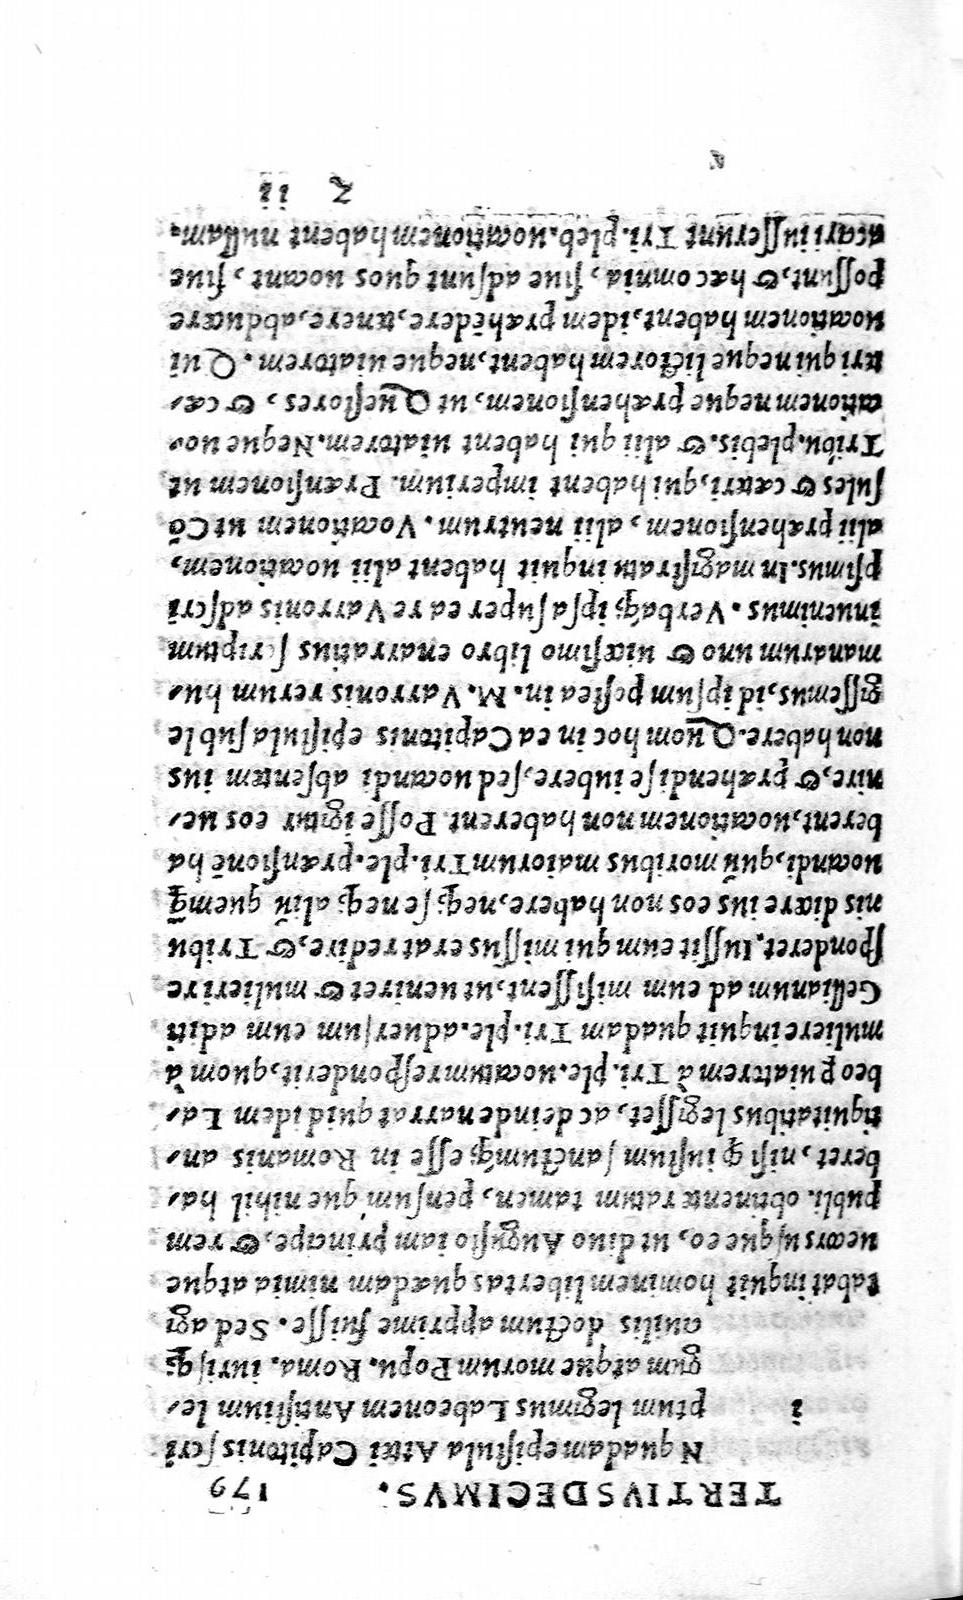 TERTIVSDECIMVS. 179
N quadam epistula Ateii Capitonis scri
i ptum legimus Labeonem Antistium le,
gum atque morum Popu. Roma. iurisq́;
ciuilis doctum apprime fuisse. Sed agi
tabat inquit hominem libertas quædam nimia atque
uecors usque eo, ut diuo Augusto iam principe, & rem
publi. obtinente ratum tamen, pensum´que nihil ha,
beret, nisi ꝙ iustum sanctumq́; esse in Romanis an,
tiquitatibus legisset, ac deinde narrat quid idem La,
beo ꝑ uiatorem à Tri. ple. uocatum responderit, quom à
muliere inquit quadam Tri. ple. aduersum eum aditi
Gellianum ad eum misissent, ut ueniret & mulieri re
sponderet. Iussit eum qui missus erat redire, & Tribu
nis dicere ius eos non habere, neq; se neq; aliũ quemꝙ̃
uocandi, qũu moribus maiorum Tri. ple. prænsionē ha
berent, uocationem non haberent. Posse igitur eos ue,
nire, & præhendi se iubere, sed uocandi absentem ius
non habere. Quom hoc in ea Capitonis epistula suble
gissemus, id ipsum postea in. M. Varronis rerum hu,
manarum uno & uicesimo libro enarratius scriptum
inuenimus. Verbaq́; ipsa super ea re Varronis adscri
psimus. In magistratu inquit habent alii uocationem,
alii præhensionem, alii neutrum. Vocationem ut Cõ
sules & cæteri, qui habent imperium. Prænsionem ut
Tribu. plebis. & alii qui habent uiatorem. Neque uo,
cationem neque præhensionem, ut Quæstores, & cæ,
teri qui neque lictorem habent, neque uiatorem. Qui
uocationem habent, idem præhēdere, tenere, abducere
possunt, & hæc omnia, siue adsunt quos uocant, siue
acciri iusserunt Tri. pleb. uocationem habent nullam.
z ii